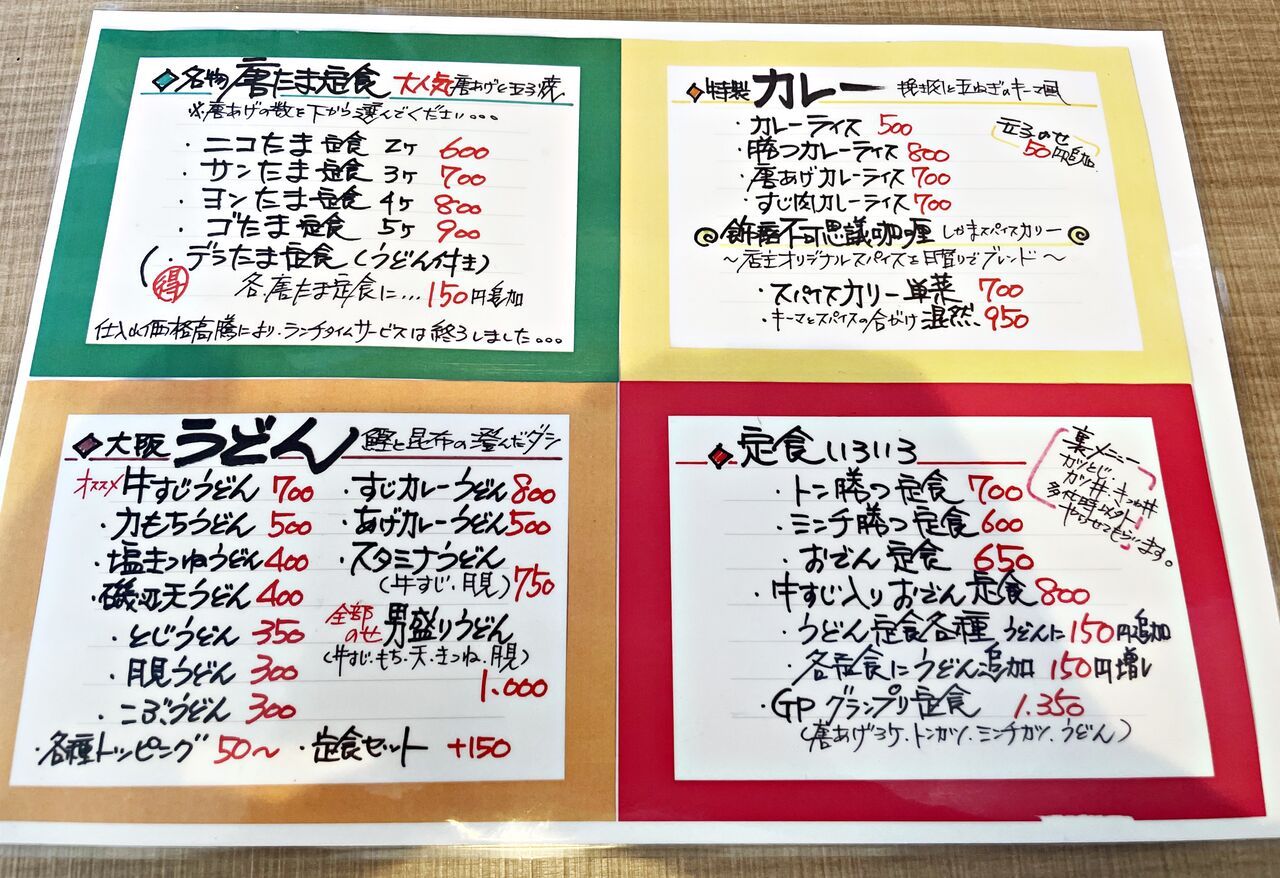 名物 唐たま定食 大人気 唐あげと玉子焼
※唐あげの数を下から選んでください。。。
・ニコたま定食 2ヶ 600
・サンたま定食 3ヶ 700
・ヨンたま定食 4ヶ 800
・ゴたま定食 5ヶ 900
・デラたま定食(うどん付き)
得 各唐たま定食に…150円追加
仕入れ価格高騰により、ランチタイムサービスは終了しました。。。
特製 カレー 挽き肉と玉ねぎのキーマ風
・カレーライス 500
・勝つカレーライス 800
・唐あげカレーライス 700
・すじ肉カレーライス 700
玉子のせ
50円追加
飾磨不可思議咖喱 しかまスパイスカリー
〜店主オリジナルスパイスを目盛りでブレンド〜
・スパイスカリー単菜 700
・キーマとスパイスの合がけ 混然 950
大阪 うどん 鰹と昆布の澄んだダシ
オススメ 牛すじうどん 700
・力もちうどん 500
・塩きつねうどん 400
・磯辺天うどん 400
・とじうどん 350
・月見うどん 300
・こぶうどん 300
・すじカレーうどん 800
・あげカレーうどん 500
・スタミナうどん
(牛すじ・月見) 750
全部のせ 男盛りうどん
(牛すじ・もち・天・きつね・月見)
1.000
・各種トッピング 50〜 ・定食セット +150
定食いろいろ
・トン勝つ定食 700
・ミンチ勝つ定食 600
・おでん定食 650
・牛すじ入りおでん定食 800
・うどん定食各種 うどんに150円追加
・各定食にうどん追加 150円増し
・GPグランプリ定食 1.350
(唐あげ3ヶ、トンカツ、ミンチカツ、うどん)
裏メニュー
カツとじ、
カツ丼、きつね丼
多忙時以外
やらせてもらいます。